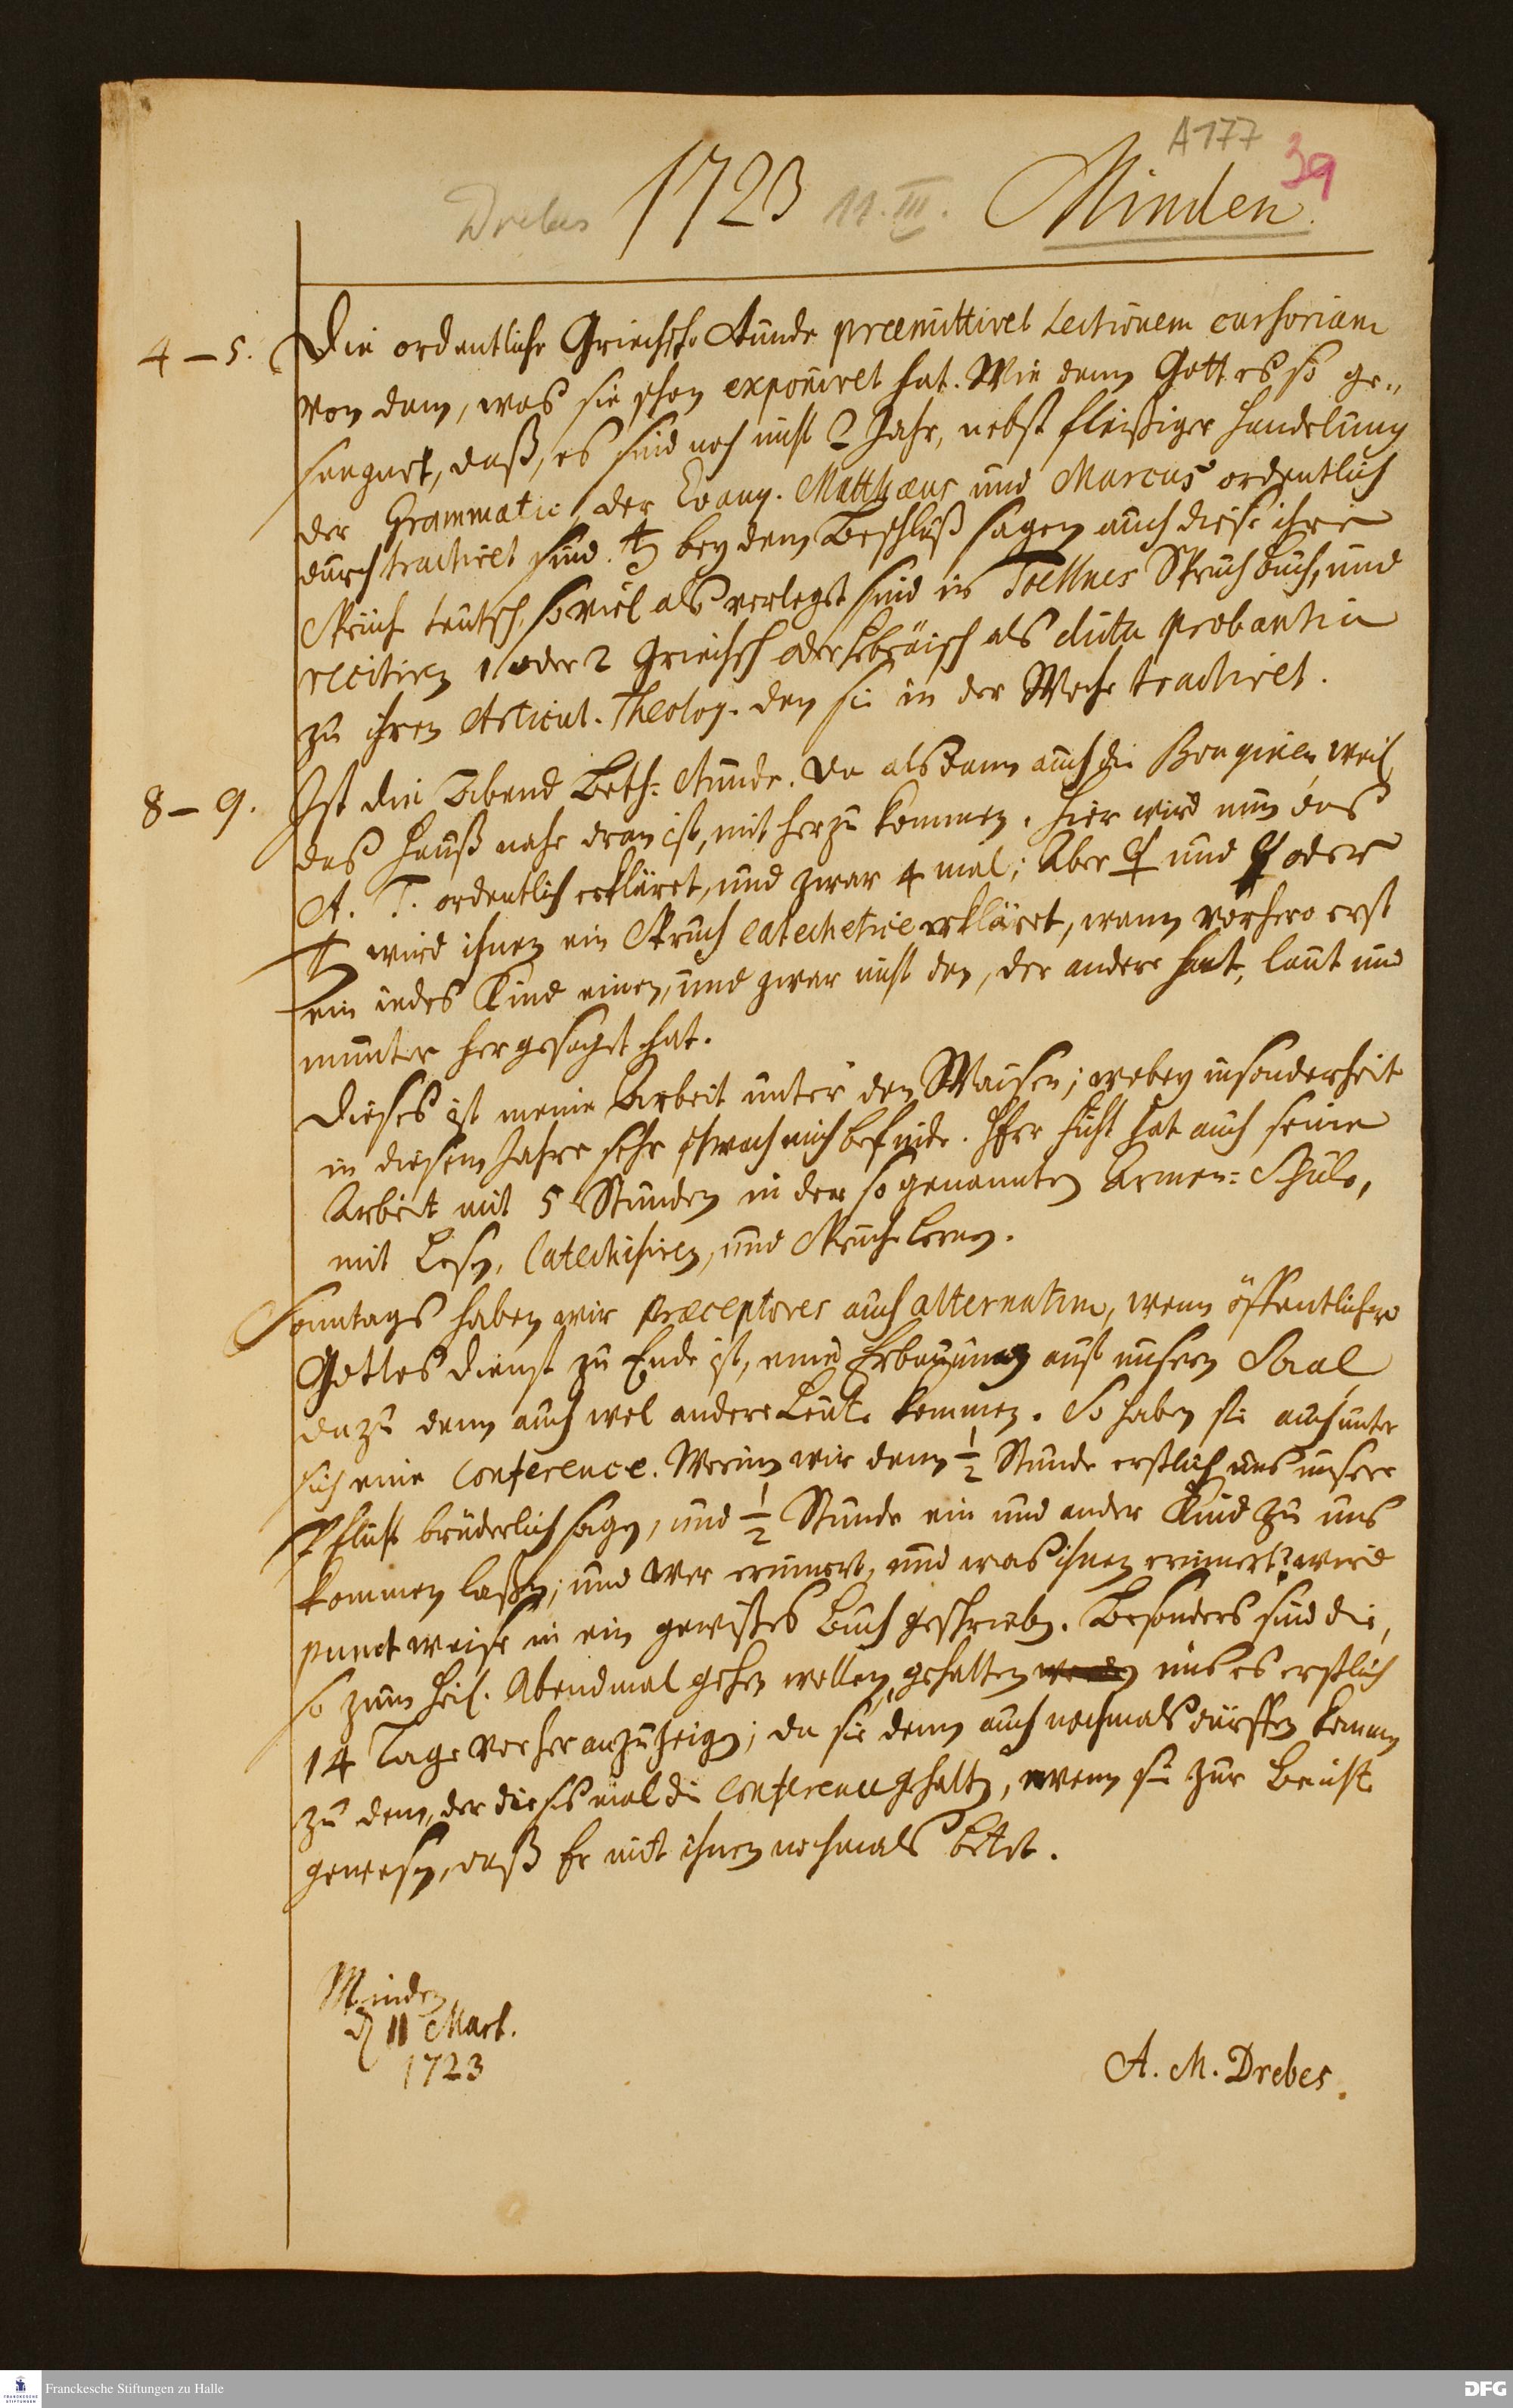 A 177
39
Drebes 1723 11. III. Minden.
4 – 5. Die ordentliche Griechsche Stunde præmittiret Lectionem cursoriam
von dem, was sie schon exponiret hat. Wie denn Gott es so ge„
seegnet, daß, es sind noch nicht 2 Jahr, nebst fleißiger Handelung
der Grammatic, der Evang. Matthæus und Marcus ordentlich
durch tractiret sind. ♄ bey dem Beschluß sagen auch diese ihre
Sprüch teutsch, so viel als verlegt sind in Toellners Spruchbuch, und
recitiren 1 oder 2 Griechsch oder Hebräisch als dicta probantia
zu ihren Articul. Theolog. den sie in der Woche tractiret.
8 – 9. Ist die Abend Beth-Stunde. Da alsdann auch die weil
das Hauß nahe dran ist, mit herzu kommen. Hier wird nun das
A. T. ordentlich erkläret, und zwar 4 mal; Aber ☿ und oder
♄ wird ihnen ein Spruch catechetice erkläret, wann vorhero erst
ein iedes Kind einen, und zwar nicht den, der andere hat, laut und
munter hergesaget hat.
Dieses ist meine Arbeit unter den Waisen; wobey insonderheit
in diesem Jahre sehr schwach mich befinde. Herr hat auch seine
Arbeit mit 5 Stunden in der so genannten Armen-Schule,
mit Lesen, Catechisiren, und Sprüche lernen.
Sonntags haben wir Præceptores auch alternatim, wenn öffentlicher
Gottesdienst zu Ende ist, eine Erbauung auf unsern Saal
dazu denn auch wol andere Leute kommen. So haben sie auch unter
sich eine Conference. Worinn wir denn ½ Stunde erstlich uns unsere
Pflicht brüderlich sagen, und ½ Stunde ein und ander Kind zu uns
kommen laßen; und wer erinnert, und was ihnen erinnert? wird
punct weise in ein gewißes Buch geschrieben. Besonders sind die,
so zum Heil. Abendmal gehen wollen, gehalten uns es erstlich
14 Tage vorher anzuzeigen; da sie denn auch nochmals dürffen kommen
zu dem, der dieses mal die Conference gehalten, wenn sie zur Beicht
gewesen, daß Er mit ihnen nochmals betet.
Minden
d 11 Mart.
1723
A. M. Drebes.
Franckesche Stiftungen zu Halle
DFG